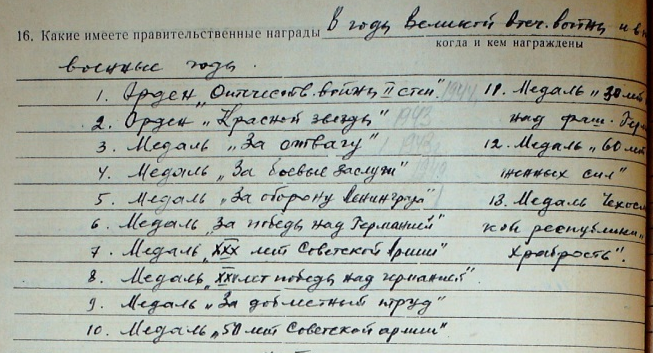 16. Какие имеете правительственные награды В годы Великой Отеч. войны и в
когда и кем награждены
военные годы.
1. Орден „Отечеств. войны II степ" 1944
2. Орден „Красной звезды" 1943
3. Медаль „За отвагу" 1943
4. Медаль „За боевые заслуги"
5. Медаль „За оборону Ленинграда"
6. Медаль „За победу над Германией"
7. Медаль „XXX лет Советской Армии"
8. Медаль „XX лет победы над германией".
9. Медаль „За доблестный труд"
10. Медаль „50 лет Советской армии"
11. Медаль „30 лет
над фаш. Герм
12. Медаль „60 лет
женных сил"
13. Медаль Чехосл
кой республики „
храбрость".